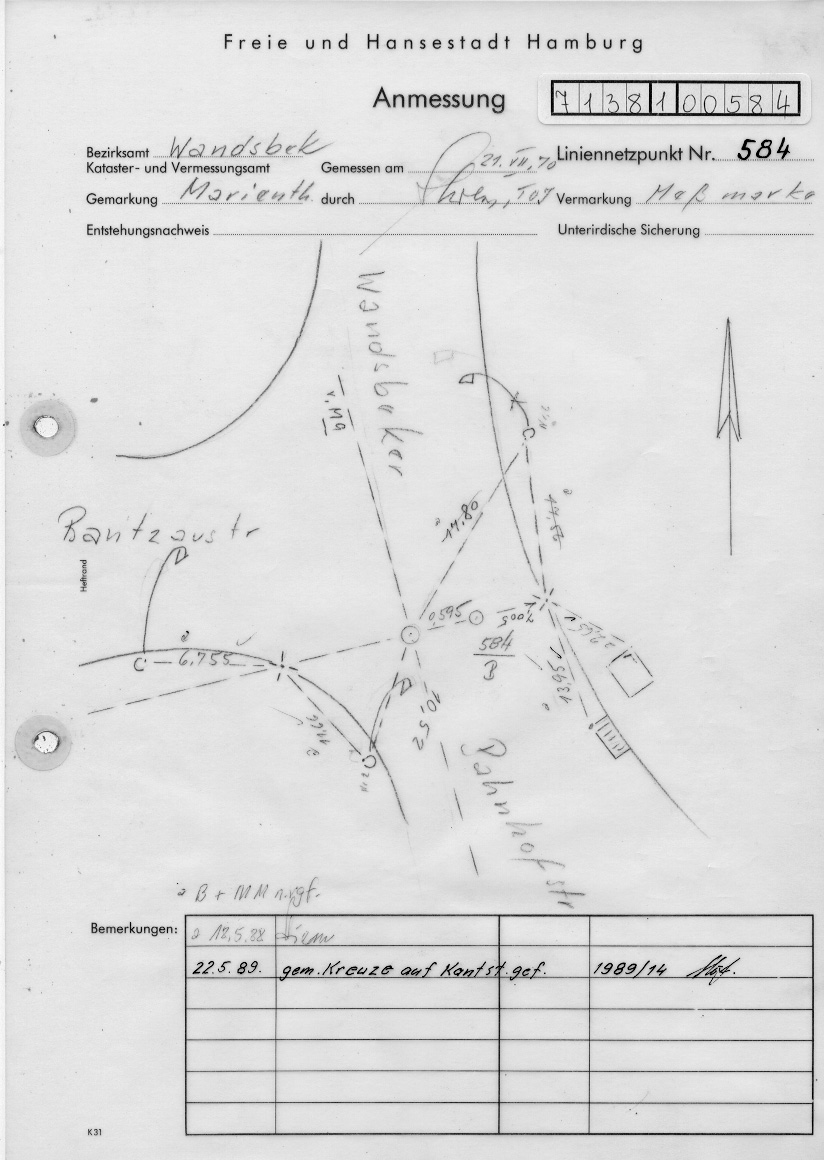 Freie und Hansestadt Hamburg
Anmessung
7138100584
Bezirksamt Wandsbek
Kataster- und Vermessungsamt
Gemessen am 21.VII.70
Liniennetzpunkt Nr. 584
Gemarkung Marienth. durch
Vermarkung Meßmarke
Entstehungsnachweis
Unterirdische Sicherung
Wandsbeker
v. M9
Bantzaustr
Heftrand
17,80
17,56
0,595
7,005
584
B
22,65
13,95
6,755
11,66
10,52
Bahnhofstr
a B + MM n. gf.
Bemerkungen:
a 12.5.88
22.5.89. gem. Kreuze auf Kantst. gef. 1989/14
K31